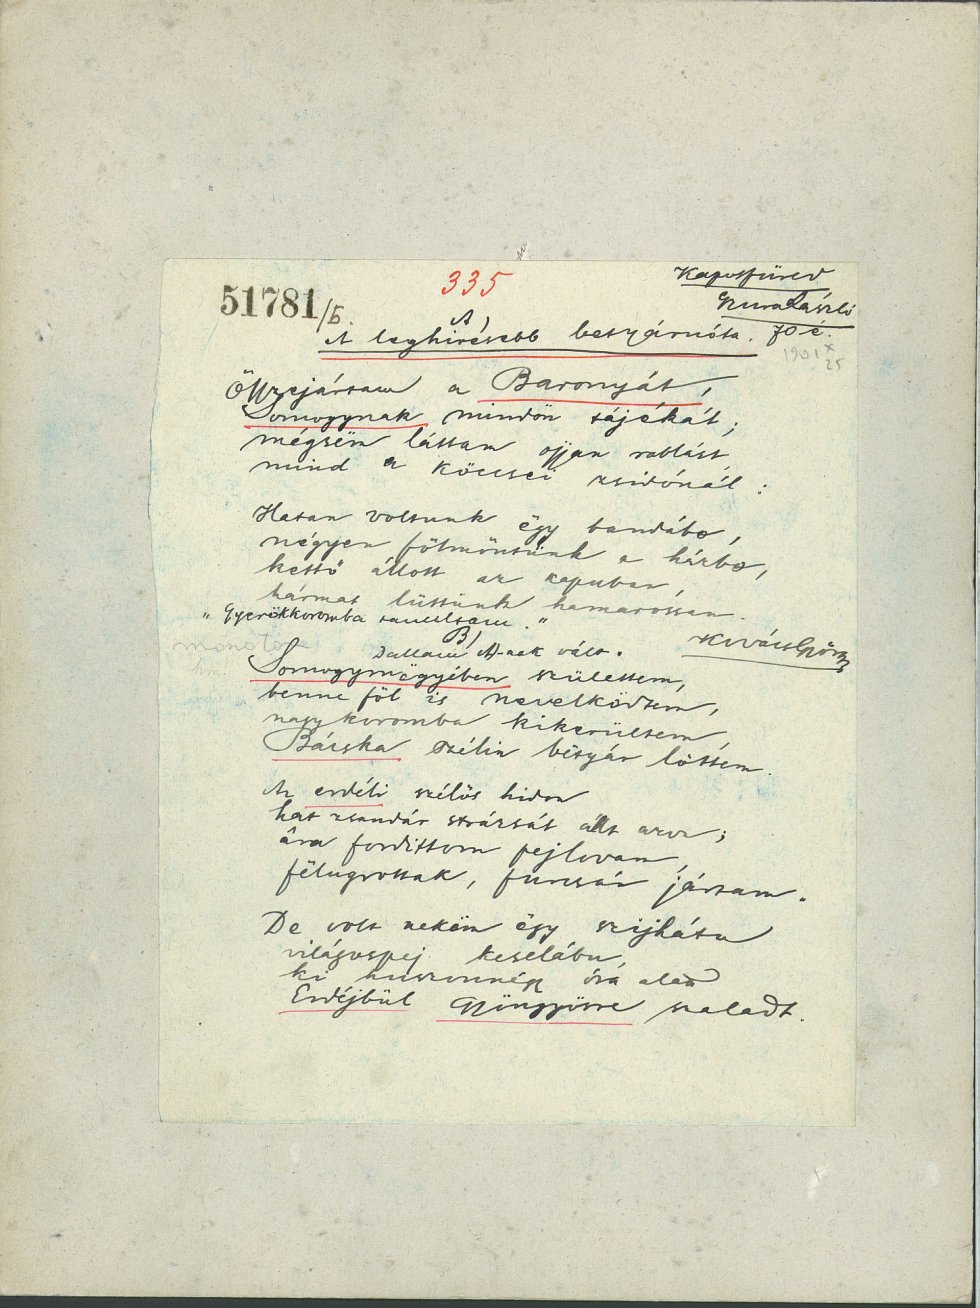 51781/b.
335
Kaposfüred
Gzura László
70 é.
1901 X
25
A)
A leghirésebb betyárnóta.
Öszzejártam a Baronyát,
Somogynak mindön tájékát;
mégsëm láttam ojjan rablást
mind a köccsei zsidónál:
Hatan voltunk ëgy bandábo,
négyen fölmöntünk a házbo,
kettő állott az kapuban,
hármat lüttünk hamarossan.
"Gyerökkoromba tanultam."
Kovács György
monoton
hn!
B)
Dallam A)-nak vált.
Somogymëgyében születtem,
benne föl is nevelködtem,
nagykoromba kikerültem,
Bácska szélin bétyár löttem.
Az erdéli szélös hidon
hat zsandár strázsát állt azon;
ára fordittom pejlovam,
fëlugrottak, furcsán jártam.
De volt nekëm ëgy szijhátu
világospej keselábu,
ki huszonnégy óra alatt
Erdéjbül Gyöngyösre szaladt.